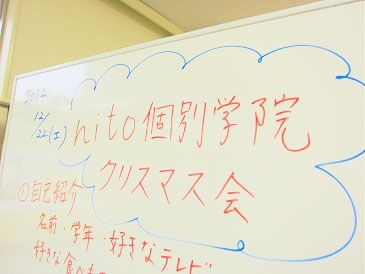 2012
12/22(土)
nito個別学院
クリスマス会
①自己紹介
名前・学年・好きなテレビ
好きな食べもの